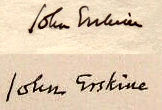 John Erskine
John Erskine